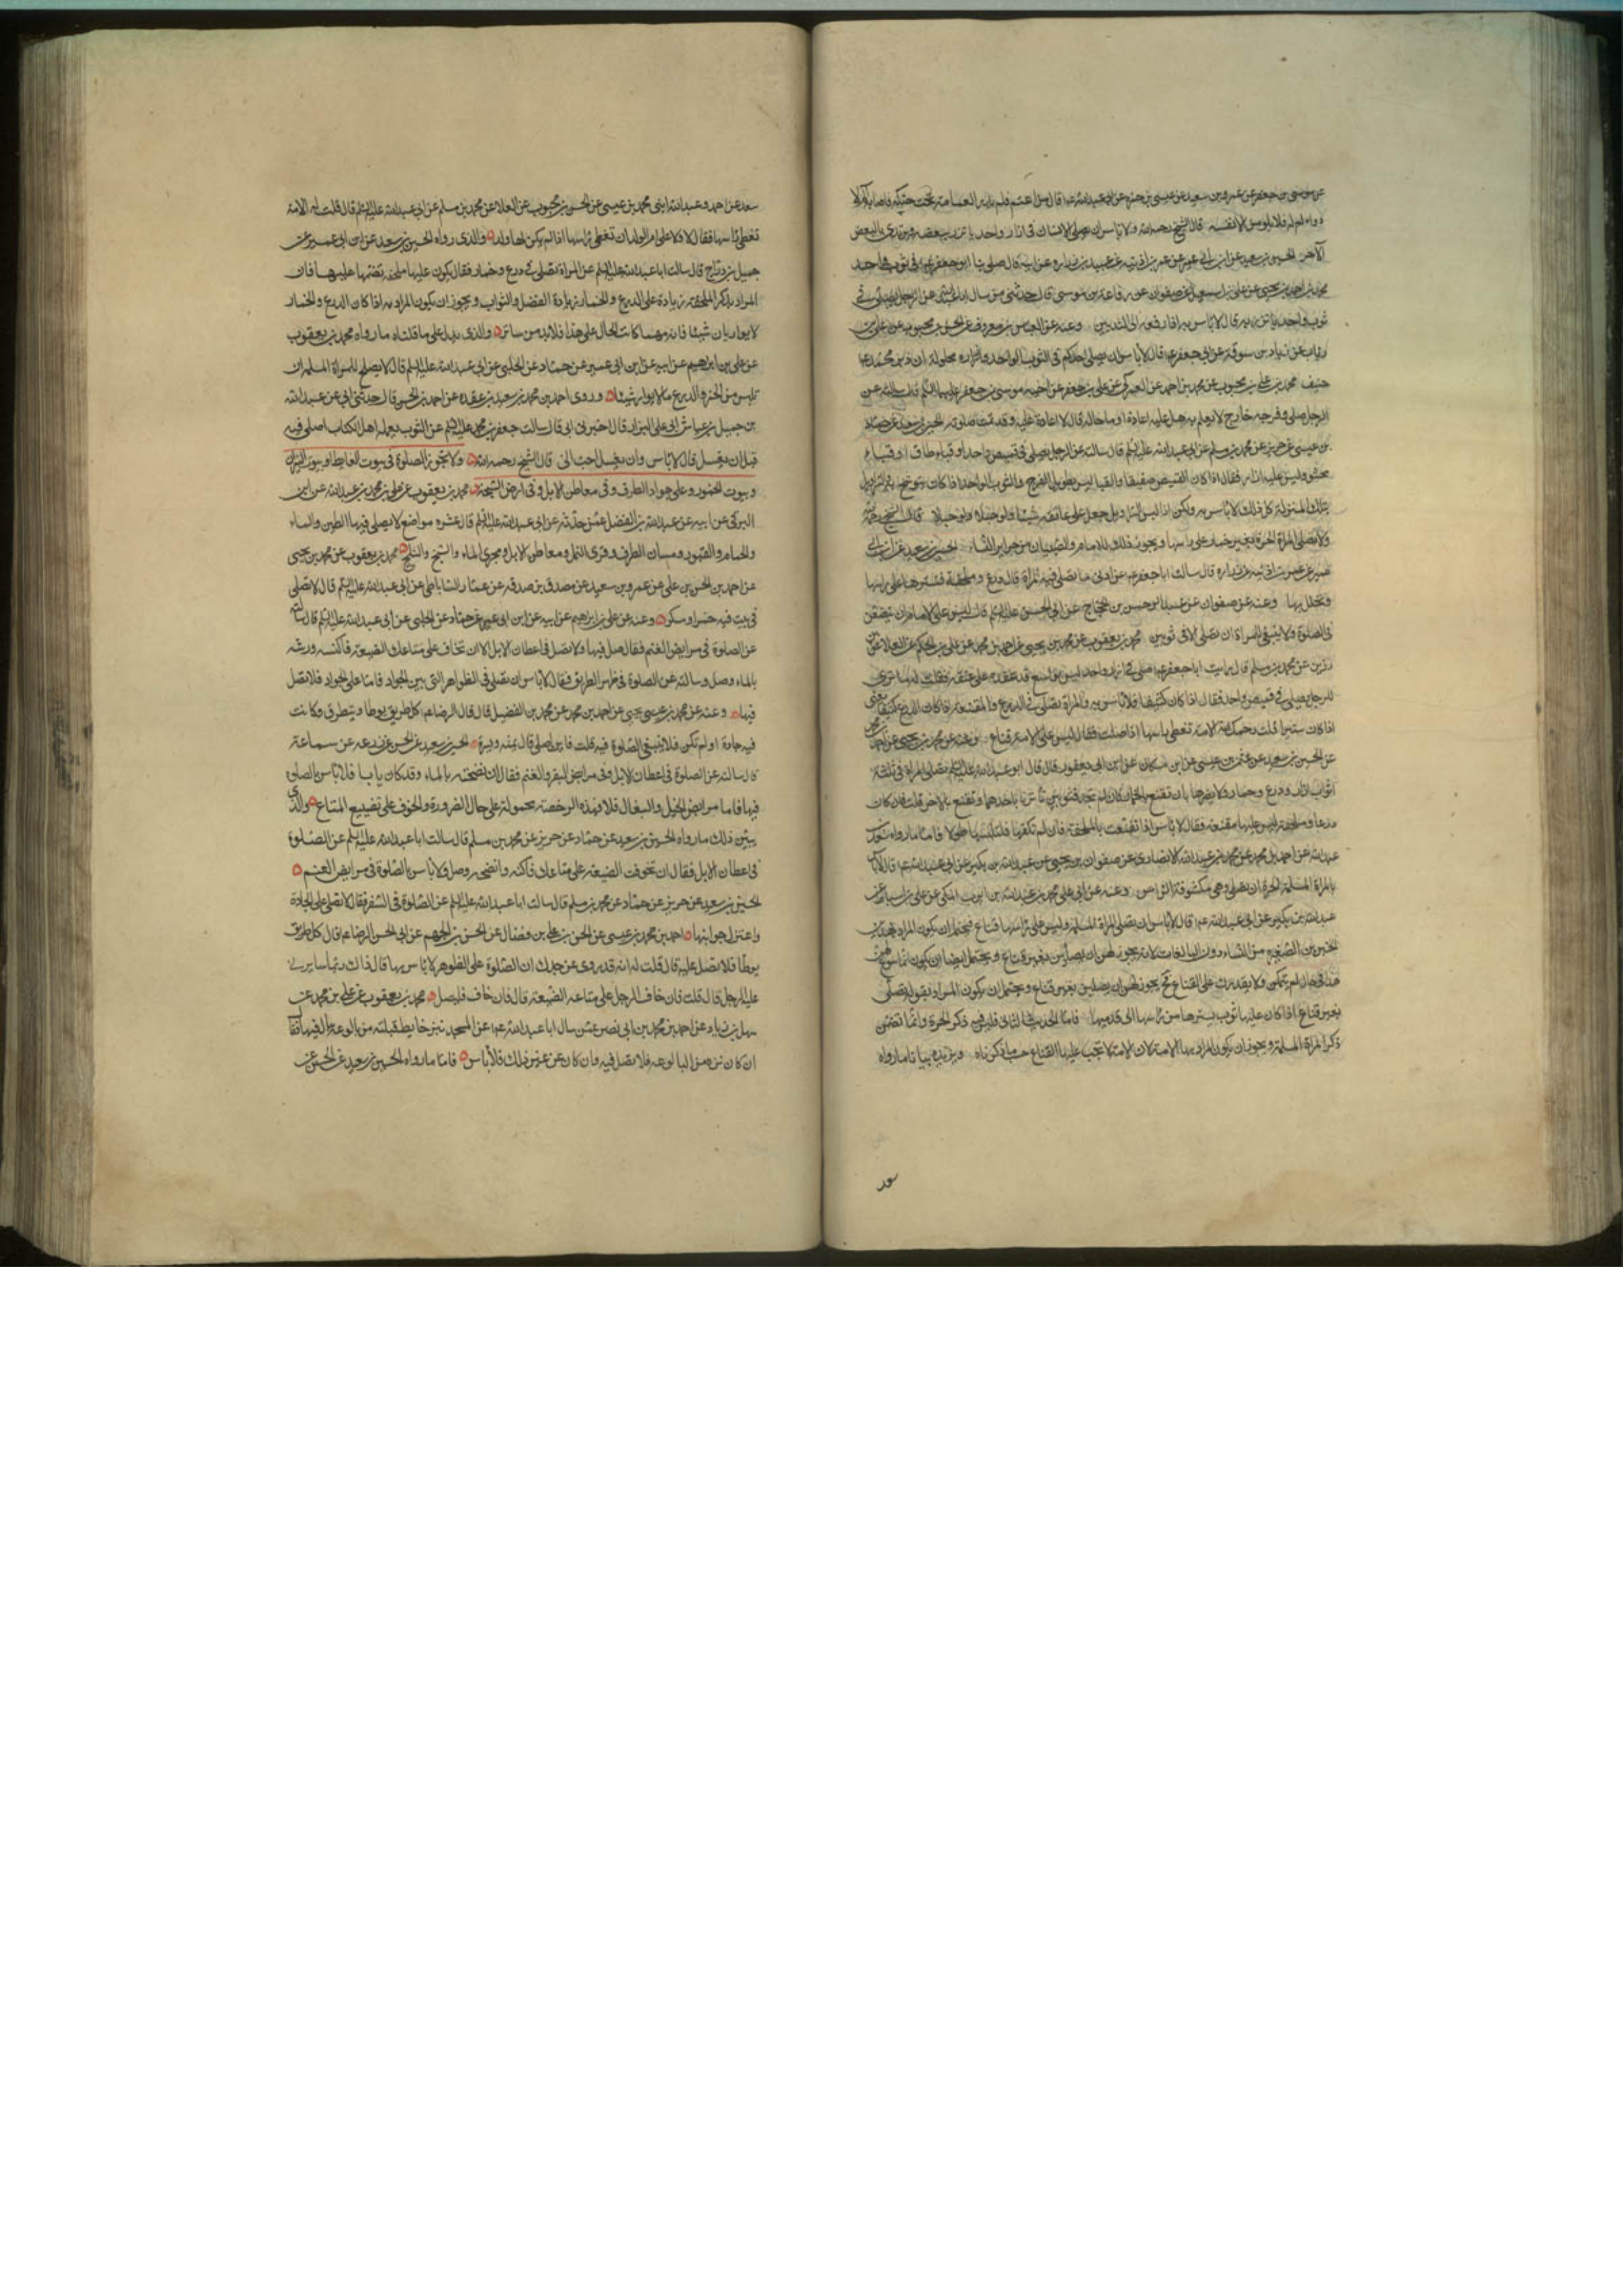 عن موسى بن جعفر عن عمرو بن سعيد عن عيسى بن حمزة عن ابى عبد الله ع قال من اعتم فلم يدر العمامة تحت حنكه فاصابه الم لا
دواء له فلا يلومن الا نفسه قال الشيخ رحمه الله ولا باس ان يصلى الانسان فى ازار واحد ياتزر ببعضه ويرتدى بالبعض
الآخر الحسين بن سعيد عن ابن ابى عمير عن عمر بن اذينة عن عبيد بن زرارة عن ابيه قال صلى بنا ابو جعفر ع فى ثوب واحد
محمد بن احمد بن يحيى عن على بن اسمعيل عن صفوان عن رفاعة بن موسى قال حدثنى من سال ابا عبد الله عن الرجل يصلى فى
ثوب واحد ياتزر به قال لا باس به اذا رفعه الى الثديين وعنه عن العباس بن معروف عن الحسن بن محبوب عن على بن
رئاب عن زياد بن سوقة عن ابى جعفر ع قال لا باس ان يصلى احدكم فى الثوب الواحد وازراره محلولة ان دين محمد ع
حنيف محمد بن على بن محبوب عن محمد بن احمد عن العمركى عن على بن جعفر عن اخيه موسى بن جعفر عليهما السلم قال سالته عن
الرجل صلى وفرجه خارج لا يعلم به هل عليه اعادة او ما حاله قال لا اعادة عليه وقد تمت صلوته الحسين بن سعيد عن حماد
بن عيسى عن حريز عن محمد بن مسلم عن ابى عبد الله عليه السلم قال سالته عن الرجل يصلى فى قميص واحد او قباء طاق او قباء
محشو وليس عليه ازار فقال اذا كان القميص صفيقا والقبا ليس بطويل الفرج والثوب الواحد اذا كان يتوشح به والسراويل
بتلك المنزلة كل ذلك لا باس به ولكن اذا لبس السراويل جعل على عاتقه شيئا ولو حبلا قال الشيخ رحمه الله
ولا تصلى المراة الحرة بغير خمار على راسها ويجوز ذلك للاماء والصبيات من حراير النساء الحسين بن سعيد عن ابن ابى
عمير عن عمر بن اذينة عن زرارة قال سالت ابا جعفر ع عن ادنى ما تصلى فيه المراة قال درع وملحفة فتنشرها على راسها
وتجلل بها وعنه عن صفوان عن عبد الرحمن بن الحجاج عن ابى الحسن عليه السلم قال ليس على الاماء ان يتقنعن
فى الصلوة ولا ينبغى للمراة ان تصلى الا فى ثوبين محمد بن يعقوب عن محمد بن يحيى عن احمد بن محمد عن على بن الحكم عن العلا بن
رزين عن محمد بن مسلم قال رايت ابا جعفر ع صلى فى ازار واحد ليس بواسع قد عقده على عنقه فقلت له ما ترى
للرجل يصلى فى قميص واحد فقال اذا كان كثيفا فلا باس به والمراة تصلى فى الدرع والمقنعة اذا كان الدرع كثيفا يعنى
اذا كان ستيرا قلت رحمك الله الامة تغطى راسها اذا صلت فقال ليس على الامة قناع وعنه عن محمد بن يحيى عن احمد بن محمد
عن الحسين بن سعيد عن عثمن بن عيسى عن ابن مسكان عن ابن ابى يعفور قال قال ابو عبد الله عليه السلم تصلى المراة فى ثلثة
اثواب ازار ودرع وخمار ولا يضرها بان تقنع بالخمار فان لم تجد فثوبين تاتزر باحدهما وتقنع بالاخر قلت فان كان
درعا وملحفة ليس عليها مقنعة فقال لا باس اذا تقنعت بالملحفة فان لم تكفها فلتلبسها طولا فاما ما رواه سعد بن
عبد الله عن احمد بن محمد عن محمد بن عبد الله الانصارى عن صفوان بن يحيى عن عبد الله بن بكير عن ابى عبد الله ع قال لا باس
بالمراة المسلمة الحرة ان تصلى وهى مكشوفة الراس وعنه عن ابى على محمد بن عبد الله بن ايوب المكى عن على بن اسباط عن
عبد الله بن بكير عن ابى عبد الله ع قال لا باس ان تصلى المراة المسلمة وليس على راسها قناع فيحتمل ان يكون المراد بهذين
الخبرين الصغيرة من النساء دون البالغات لانه يجوز لهن ان يصلين بغير قناع ويحتمل ايضا ان يكون انما سوغ لهن
هذا فى حال لم يتمكن ولا يقدرن على القناع فح يجوز لهن ان يصلين بغير قناع ويحتمل ان يكون المراد بقوله تصلى
بغير قناع اذا كان عليها ثوب يسترها من راسها الى قدميها فاما الحديث الثانى فليس فيه ذكر الحرة وانما تضمن
ذكر المراة المسلمة ويجوز ان يكون المراد بها الامة لان الامة لا تجب عليها القناع حسب ما ذكرناه ويزيده بيانا ما رواه
سعد
سعد عن احمد وعبد الله ابنى محمد بن عيسى عن الحسن بن محبوب عن العلا عن محمد بن مسلم عن ابى عبد الله عليه السلم قال قلت له الامة
تغطى راسها فقال لا ولا على ام الولد ان تغطى راسها اذا لم يكن لها ولد والذى رواه الحسين بن سعيد عن ابن ابى عمير عن
جميل بن دراج قال سالت ابا عبد الله عليه السلم عن المراة تصلى فى درع وخمار فقال يكون عليها ملحفة تضمها عليها فان
المراد بذكر الملحفة زيادة على الدرع والخمار زيادة الفضل والثواب ويجوز ان يكون المراد به اذا كان الدرع والخمار
لا يواريان شيئا فانه مهما كانت الحال على هذا فلا بد من ساتر والذى يدل على ما قلناه ما رواه محمد بن يعقوب
عن على بن ابراهيم عن ابيه عن ابن ابى عمير عن حماد عن الحلبى عن ابى عبد الله عليه السلم قال لا يصلح للمراة المسلمة ان
تلبس من الخمر والدروع ما لا يوارى شيئا وروى احمد بن محمد بن سعيد بن عقدة عن احمد بن الحسن قال حدثنى ابى عن عبد الله
بن جميل بن عياش ابى على البزاز قال اخبرنى ابى قال سالت جعفر بن محمد عليه السلم عن الثوب يعمله اهل الكتاب اصلى فيه
قبل ان يغسل قال لا باس وان يغسل احب الى قال الشيخ رحمه الله ولا تجوز الصلوة فى بيوت الغايط وبيوت النيران
وبيوت الخمور وعلى جواد الطرق وفى معاطن الابل وفى ارض السبخة محمد بن يعقوب عن على بن محمد بن عبد الله عن ابن
البرقى عن ابيه عن عبد الله بن الفضل عمن حدثه عن ابى عبد الله عليه السلم قال عشرة مواضع لا يصلى فيها الطين والماء
والحمام والقبور ومسان الطرق وقرى النمل ومعاطن الابل ومجرى الماء والسبخ والثلج محمد بن يعقوب عن محمد بن يحيى
عن احمد بن الحسن بن على عن عمرو بن سعيد عن مصدق بن صدقه عن عمار الساباطى عن ابى عبد الله عليه السلم قال لا تصلى
فى بيت فيه خمر او مسكر وعنه عن على بن ابرهيم عن ابيه عن ابن ابى عمير عن حماد عن الحلبى عن ابى عبد الله عليه السلم قال سالته
عن الصلوة فى مرابض الغنم فقال صل فيها ولا تصل فى اعطان الابل الا ان تخاف على متاعك الضيعة فاكنسه ورشه
بالماء وصل وسالته عن الصلوة فى ظهر الطريق فقال لا باس ان تصلى فى الظواهر التى بين الجواد فاما على الجواد فلا تصل
فيها وعنه عن محمد بن يحيى عن احمد بن محمد عن محمد بن الفضيل قال قال الرضا ع كل طريق يوطا ويتطرق وكانت
فيه جادة او لم تكن فلا ينبغى الصلوة فيه قلت فاين اصلى قال يمنه ويسرة الحسين بن سعيد عن الحسن عن زرعه عن سماعة
قال سالته عن الصلوة فى اعطان الابل وفى مرابض البقر والغنم فقال ان نضحته بالماء وقد كان يابسا فلا باس بالصلوة
فيها فاما مرابض الخيل والبغال فلا فهذه الرخصة محمولة على حال الضرورة والخوف على تضييع المتاع والذى
يبين ذلك ما رواه الحسين بن سعيد عن حماد عن حريز عن محمد بن مسلم قال سالت ابا عبد الله عليه السلم عن الصلوة
فى اعطان الابل فقال ان تخوفت الضيعة على متاعك فاكنسه وانضحه وصل ولا باس بالصلوة فى مرابض الغنم
الحسين بن سعيد عن حريز عن حماد عن محمد بن مسلم قال سالت ابا عبد الله عليه السلم عن الصلوة فى السفر فقال لا تصل على الجادة
واعتزل جوانبها احمد بن محمد بن عيسى عن الحسن بن على بن فضال عن الحسن بن الجهم عن ابى الحسن الرضا ع قال كل طريق
يوطا فلا تصل عليه قال قلت له انه قد روى عن جدك ان الصلوة على الظواهر لا باس بها قال ذاك ربما سايرنى
عليه الرجل قال قلت فان خاف الرجل على متاعه الضيعة قال فان خاف فليصل محمد بن يعقوب عن على بن محمد عن
سهل بن زياد عن احمد بن محمد بن ابى نصر عمن سال ابا عبد الله ع عن المسجد ينز حايط قبلته من بالوعة يبال فيها فقال
ان كان نزه من البالوعه فلا تصل فيه وان كان من غير ذلك فلا باس فاما ما رواه الحسين بن سعيد عن الحسن عن